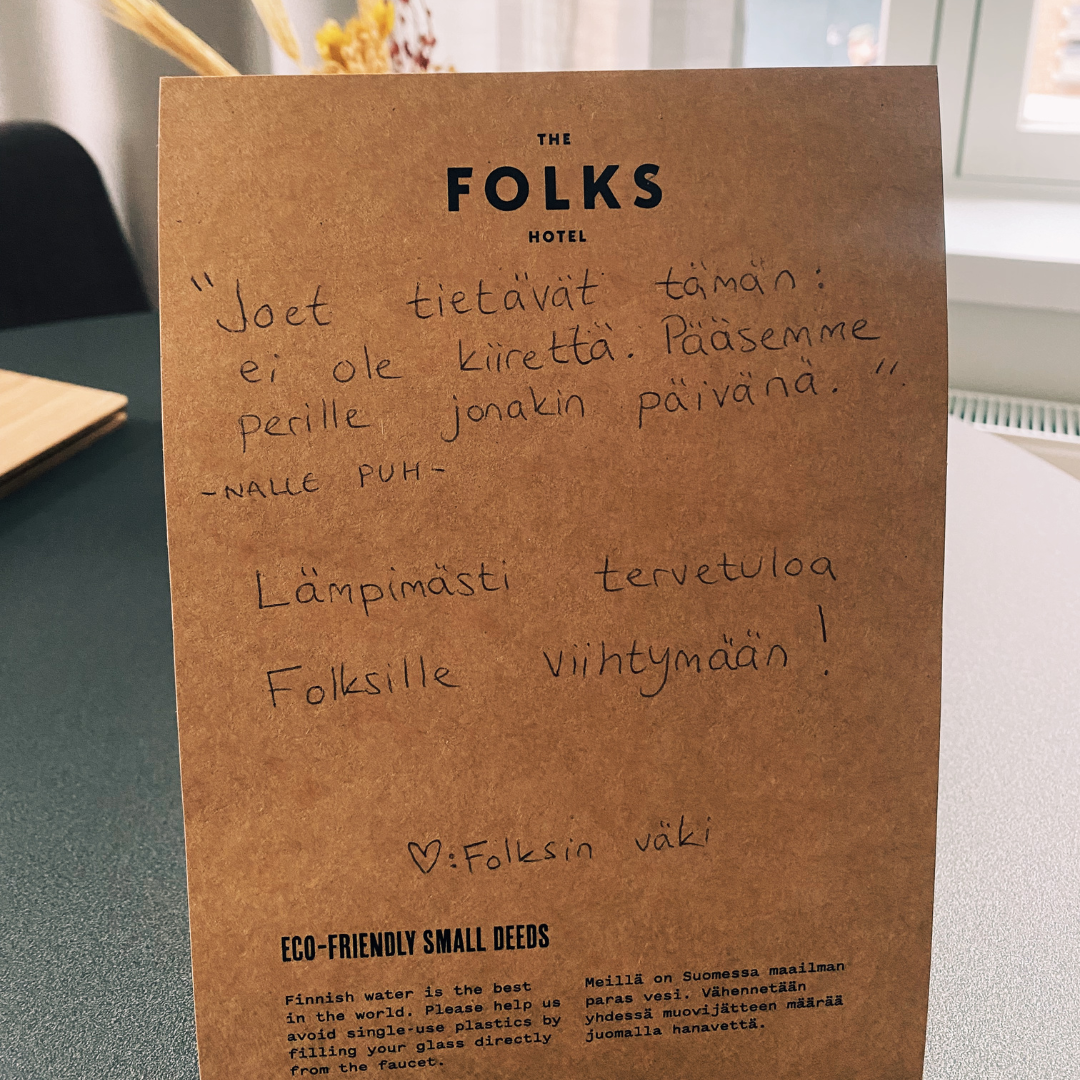 THE
FOLKS
HOTEL
"Joet tietävät tämän:
ei ole kiirettä. Pääsemme
perille jonakin päivänä."
-NALLE PUH-
Lämpimästi tervetuloa
Folksille viihtymään!
♡:Folksin väki
ECO-FRIENDLY SMALL DEEDS
Finnish water is the best
in the world. Please help us
avoid single-use plastics by
filling your glass directly
from the faucet.
Meillä on Suomessa maailman
paras vesi. Vähennetään
yhdessä muovijätteen määrää
juomalla hanavettä.